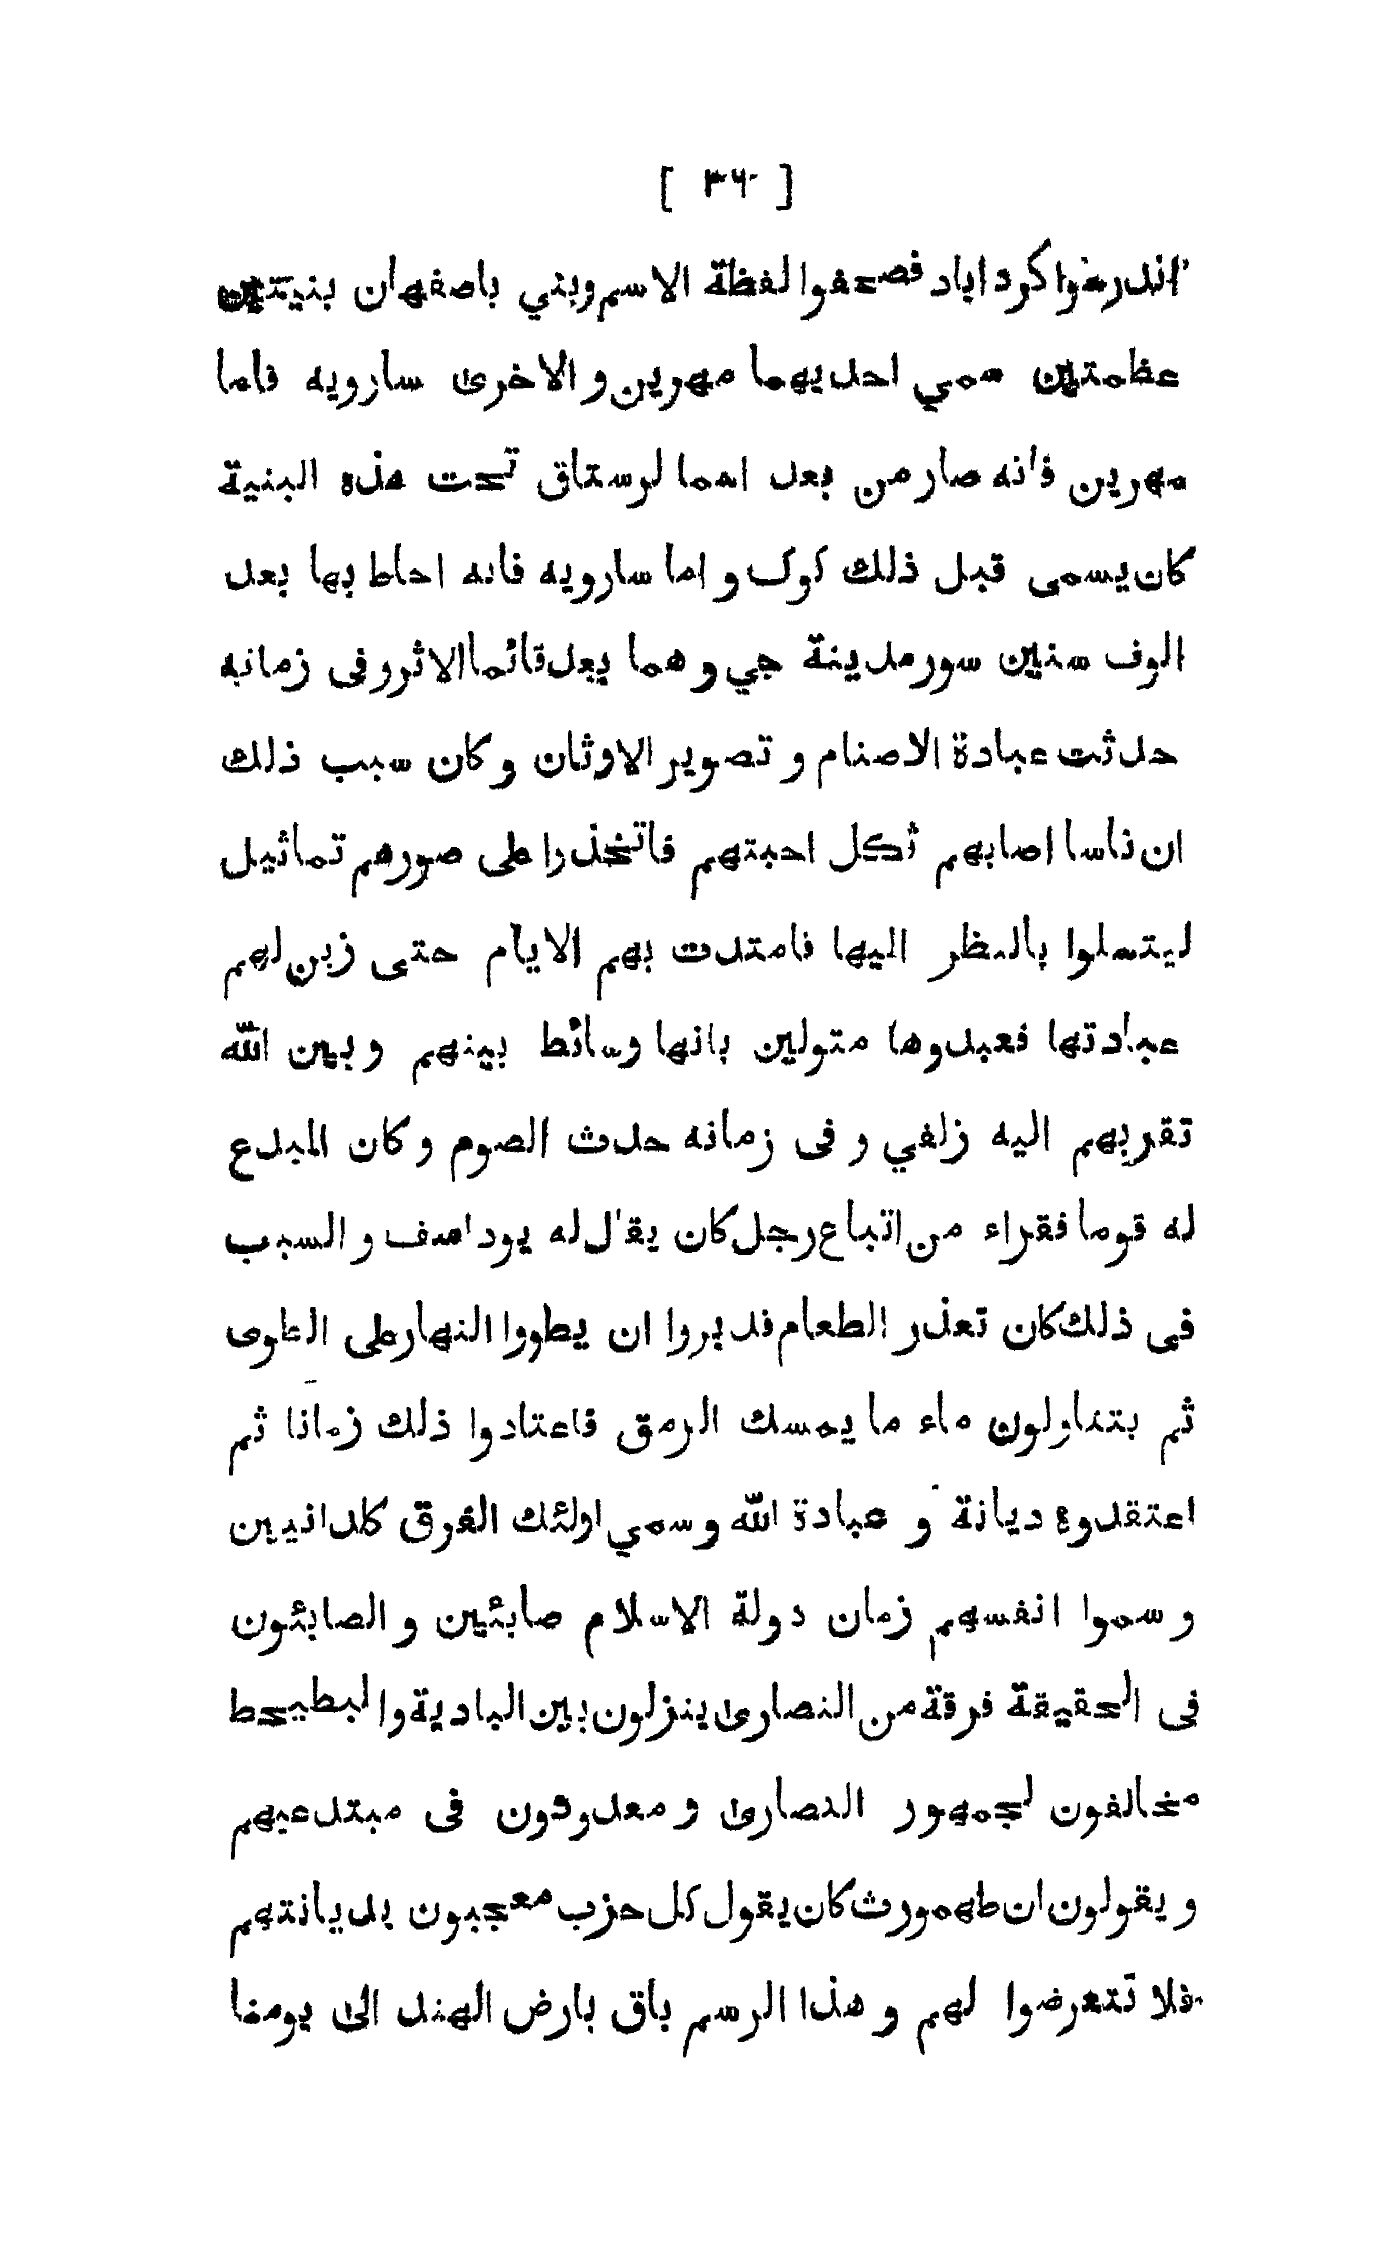 [ ٣٦٠ ]
اندرخوا كرداباد فصحفوا لفظة الاسم وبني باصفهان بنيتين
عظمتين سمي احديهما مهرين و الاخرى سارويه فاما
مهرين فانه صار من بعد اسما لرستاق تحت هذه البنية
كان يسمى قبل ذلك كوك و اما سارويه فانه احاط بها بعد
الوف سنين سور مدينة جي و هما بعد قائما الاثر و فى زمانه
حدثت عبادة الاصنام و تصوير الاوثان و كان سبب ذلك
ان ناسا اصابهم ثكل احبتهم فاتخذرا على صورهم تماثيل
ليتسلوا بالنظر اليها فامتدت بهم الايام حتى زين لهم
عبادتها فعبدوها متولين بانها وسائط بينهم و بين الله
تقربهم اليه زلفي و فى زمانه حدث الصوم و كان المبدع
له قوما فقراء من اتباع رجل كان يقال له يوداسف و السبب
فى ذلك كان تعذر الطعام فدبروا ان يطووا النهار على الطوى
ثم بتناولون ماء ما يمسك الرمق فاعتادوا ذلك زمانا ثم
اعتقدوه ديانة و عبادة الله و سمي اولئك الفرق كلدانيين
و سموا انفسهم زمان دولة الاسلام صابئيين و الصابئون
فى الحقيقة فرقة من النصارى ينزلون بين البادية و البطيحط
مخالفون لجمهور النصارى و معدودون فى مبتدعيهم
و يقولون ان طهمورث كان يقول كل حزب معجبون بديانتهم
فلا تتعرضوا لهم و هذا الرسم باق بارض الهند الى يومنا